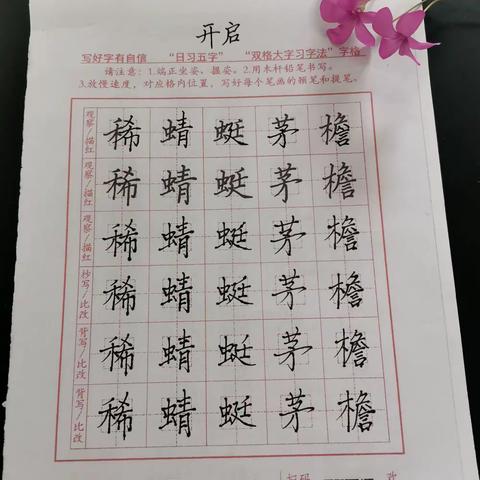 开启
写好字有自信 “日习五字” “双格大字习字法”字格
请注意：1.端正坐姿、握姿。2.用木杆铅笔书写。
3.放慢速度，对应格内位置，写好每个笔画的顿笔和提笔。
观察/描红 稀 蜻 蜓 茅 檐
观察/描红 稀 蜻 蜓 茅 檐
观察/描红 稀 蜻 蜓 茅 檐
抄写/比改 稀 蜻 蜓 茅 檐
背写/比改 稀 蜻 蜓 茅 檐
背写/比改 稀 蜻 蜓 茅 檐
扫码 欢